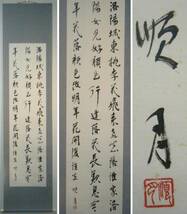 洛陽城東桃李花飛来飛去落誰家洛
陽女児好顔色行逢落花長歎息今
年花落顔色改明年花開復誰在
順月